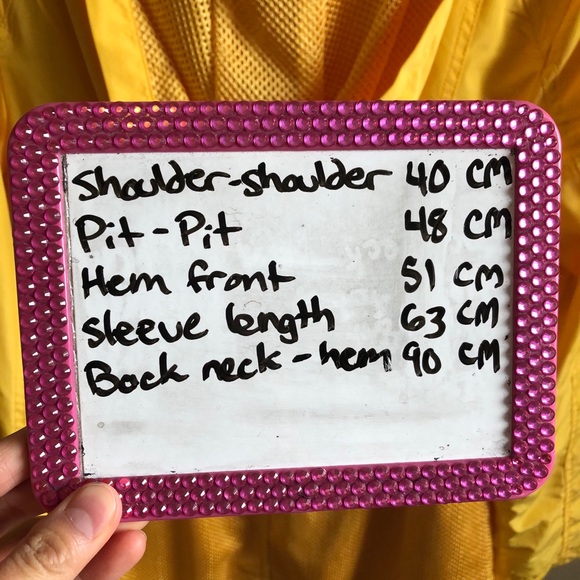 Shoulder-shoulder 40 CM
Pit-Pit 48 CM
Hem front 51 CM
Sleeve length 63 CM
Back neck-hem 90 CM